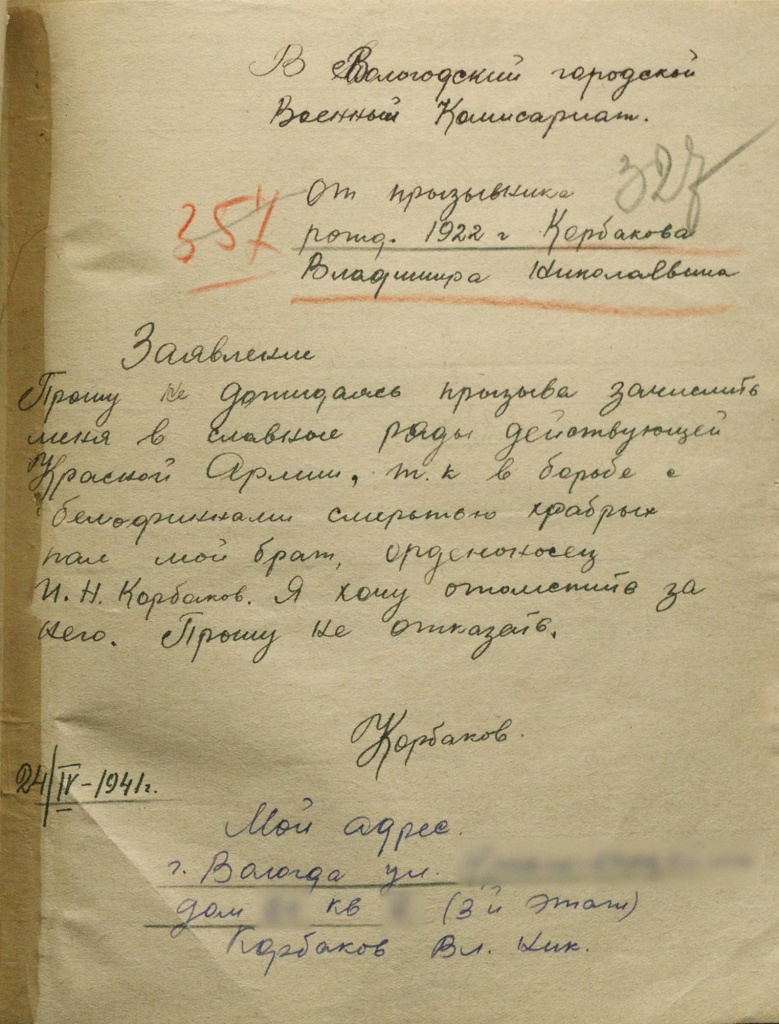 В Вологодский городской
Военный Комисариат.
327
От призывника
357
рожд. 1922 г Корбакова
Владимира Николаевича
Заявление
Прошу не дожидаясь призыва зачислить
меня в славные ряды действующей
Красной Армии, т.к в борьбе с
белофиннами смертью храбрых
пал мой брат, орденоносец
И.Н. Корбаков. Я хочу отомстить за
него. Прошу не отказать.
Корбаков.
24/IV-1941г.
Мой адрес.
г. Вологда ул.
дом кв (3й этаж)
Корбаков Вл. Ник.